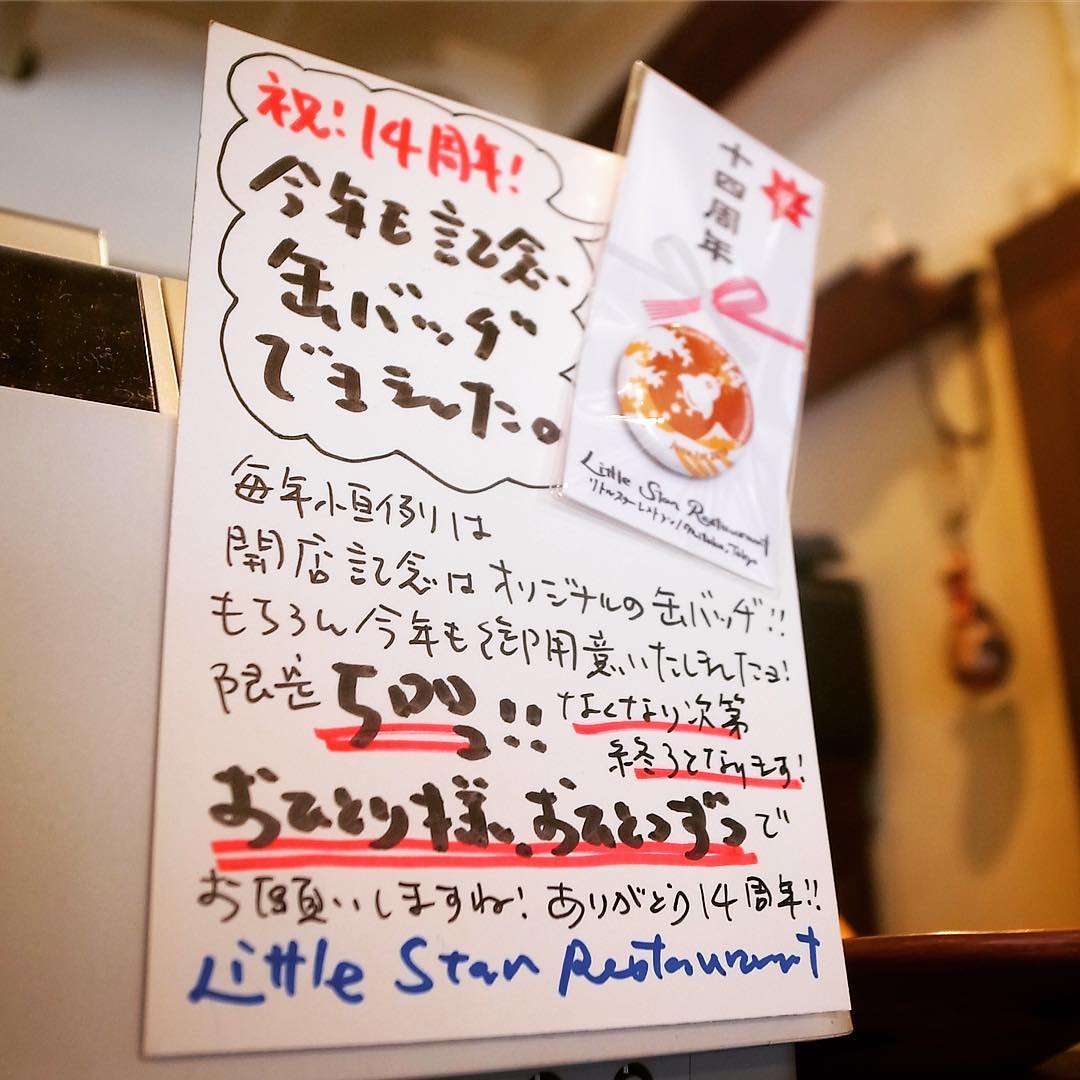 祝!14周年!
今年も記念
缶バッヂ
できました。
毎年恒例は
開店記念はオリジナルの缶バッヂ!!
もちろん今年も御用意いたしましたヨ!
限定500コ!!
なくなり次第
終了となります!
おひとり様、おひとつずつで
お願いしますね!ありがとう14周年!!
Little Star Restaurant
十四周年
祝
Little Star Restaurant
リトルスターレストラン/Mitaka, Tokyo